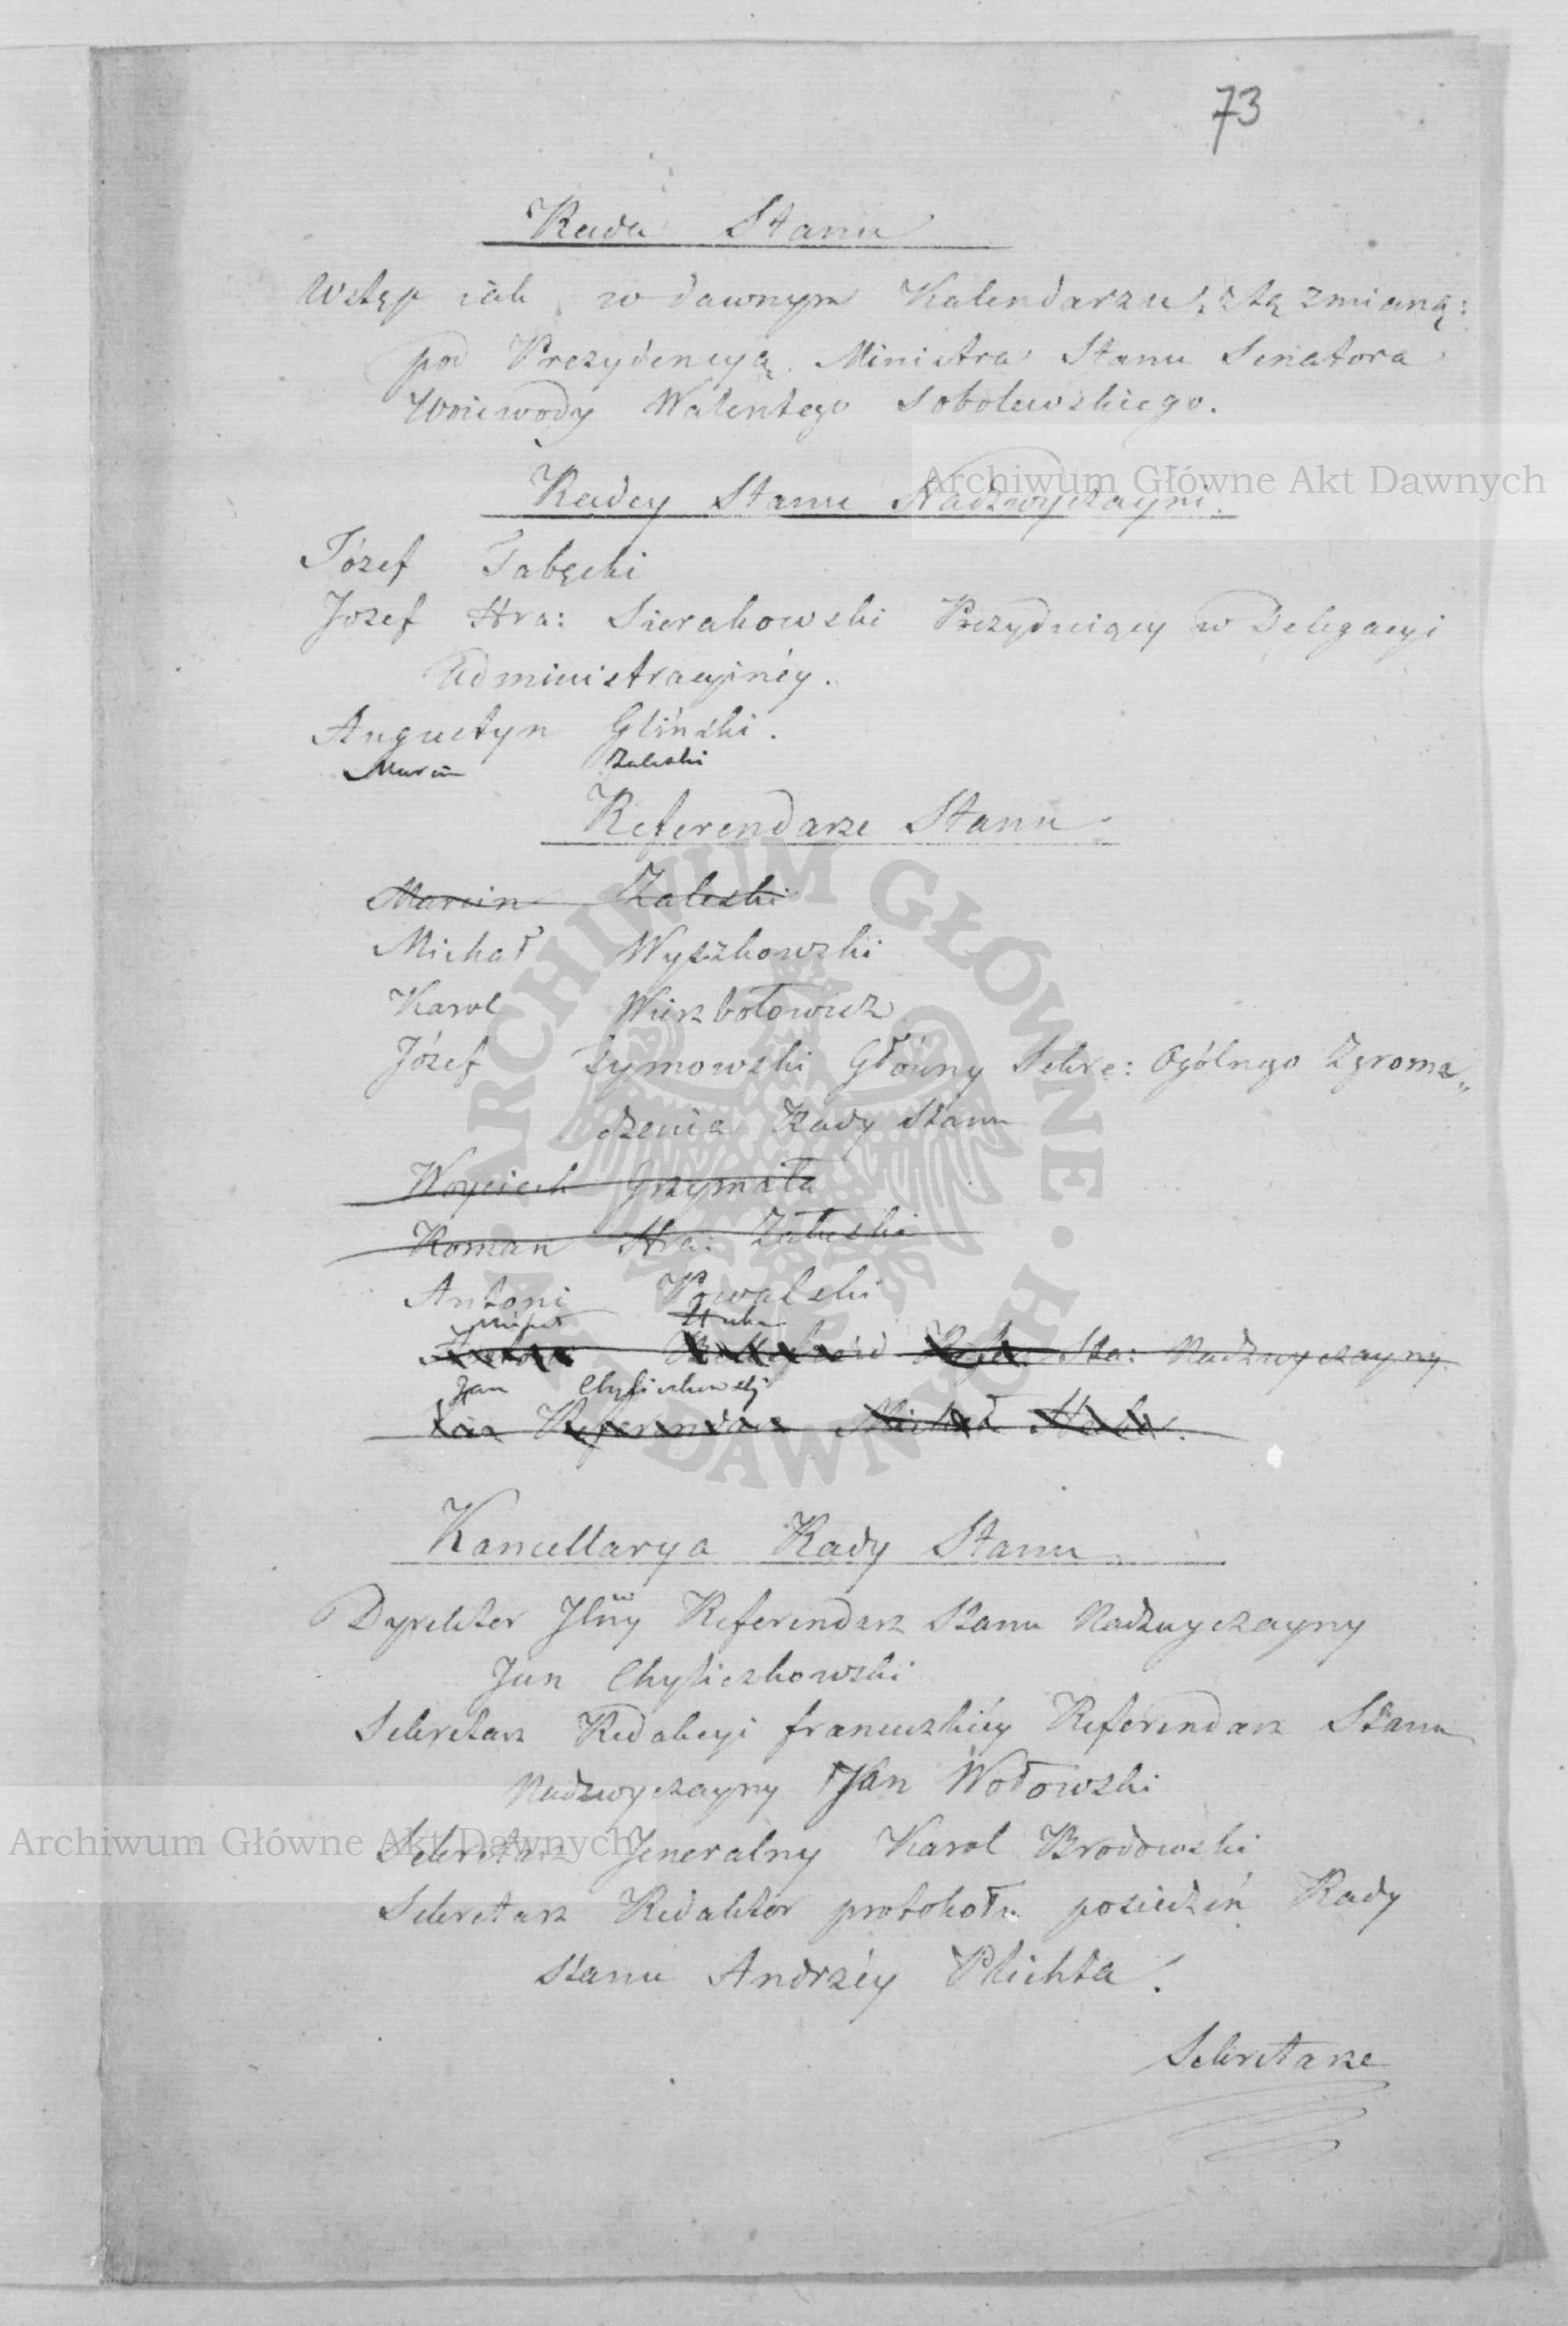 73
Rada Stanu
Wstęp iak w dawnym Kalendarzu, z tą zmianą:
pod Prezydencyą Ministra Stanu Senatora
Woiewody Walentego Sobolewskiego.
Radcy Stanu Nadzwyczayni.
Józef Tabęcki
Jozef Hra: Sierakowski Prezyduiący w Delegacyi
Administracyinéy.
Augustyn Gliński.
Marcin Zaleski
Referendarze Stanu
Marcin Zaleski
Michał Wyszkowski
Karol Wierzbołowicz
Józef Tymowski Główny Sekre: Ogólnego Zgroma„
dzenia Rady Stanu
Woyciech Grzymała
Roman Hra: Załuski
Antoni Powalski
Michał Hube
Refer: Sta: Nadzwyczayny.
Jan Chyliczkowski
Referendarz Michał Hube.
Kancellarya Rady Stanu
Dyrektor JWny Referendarz Stanu Nadzwyczayny
Jan Chyliczkowski
Sekretarz Redakcyi francuzkiéy Referendarz Stanu
Nadzwyczayny Jan Wołowski
Sekretarz Jeneralny Karol Brodowski
Sekretarz Redaktor protokołu posiedzeń Rady
Stanu Andrzéy Plichta.
Sekretarze
Archiwum Główne Akt Dawnych
ARCHIWUM GŁÓWNE AKT DAWNYCH
Archiwum Główne Akt Dawnych